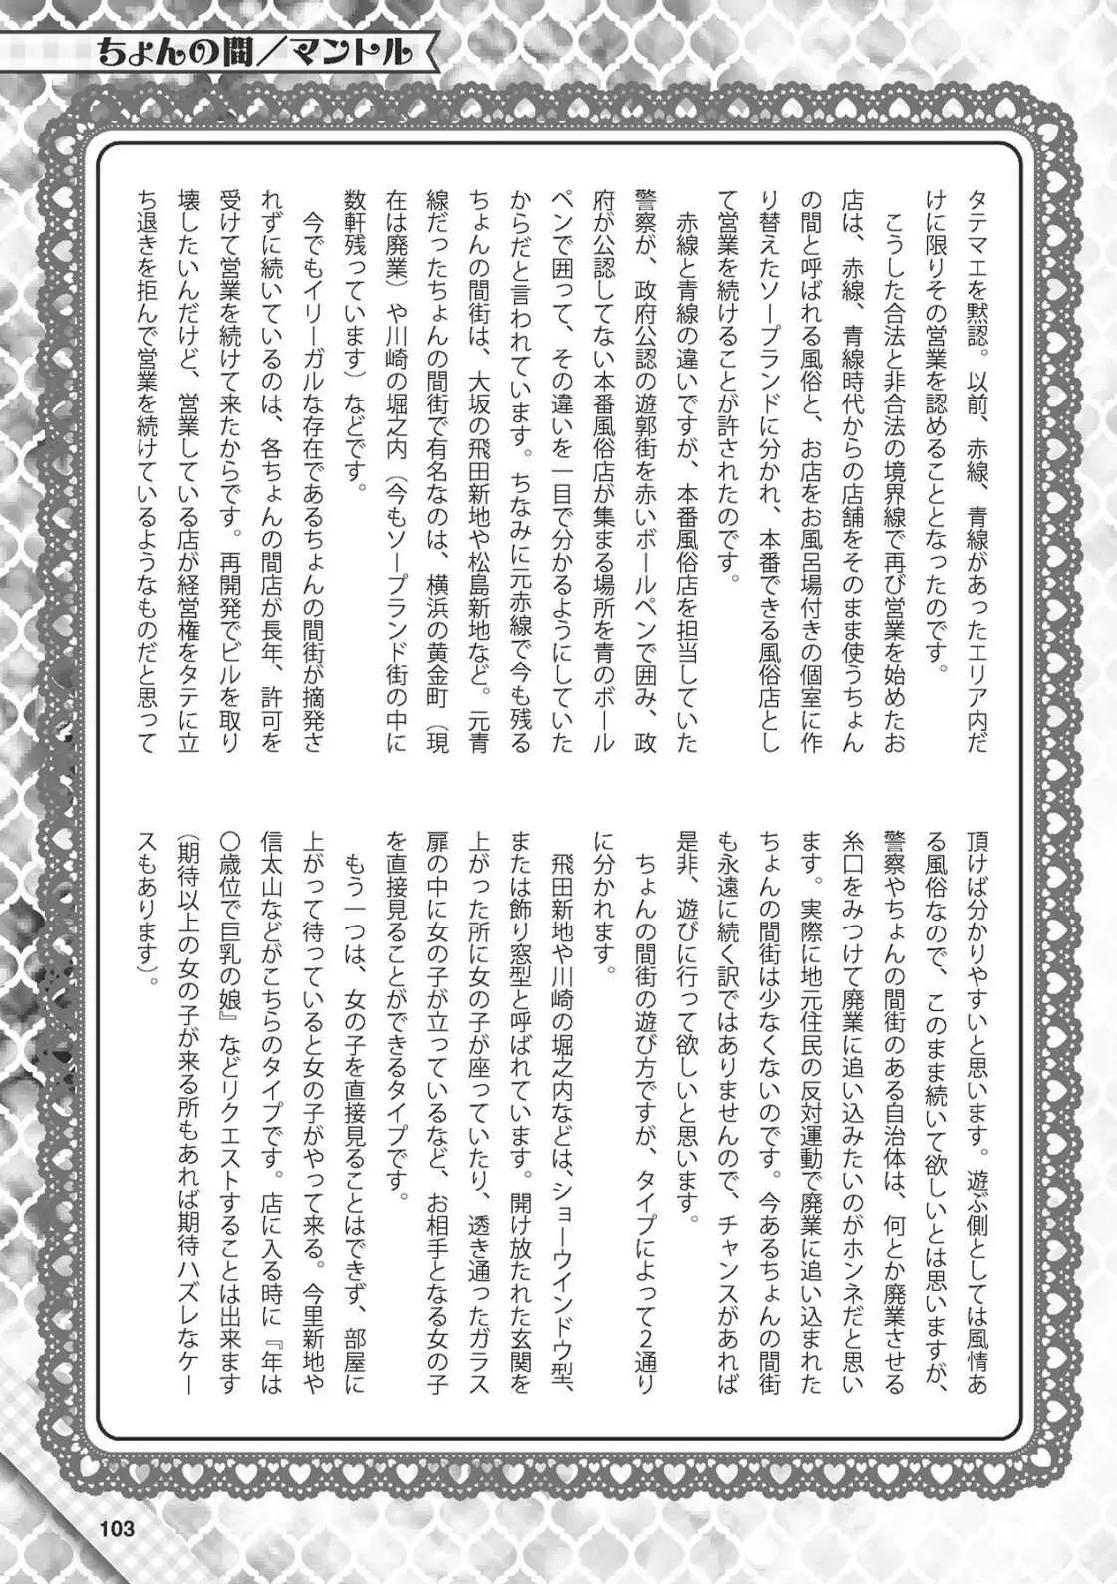 ちょんの間／マントル
タテマエを黙認。以前、赤線、青線があったエリア内だ
けに限りその営業を認めることとなったのです。
こうした合法と非合法の境界線で再び営業を始めたお
店は、赤線、青線時代からの店舗をそのまま使うちょん
の間と呼ばれる風俗と、お店をお風呂場付きの個室に作
り替えたソープランドに分かれ、本番できる風俗店とし
て営業を続けることが許されたのです。
赤線と青線の違いですが、本番風俗店を担当していた
警察が、政府公認の遊郭街を赤いボールペンで囲み、政
府が公認してない本番風俗店が集まる場所を青のボール
ペンで囲って、その違いを一目で分かるようにしていた
からだと言われています。ちなみに元赤線で今も残る
ちょんの間街は、大坂の飛田新地や松島新地など。元青
線だったちょんの間街で有名なのは、横浜の黄金町（現
在は廃業）や川崎の堀之内（今もソープランド街の中に
数軒残っています）などです。
今でもイリーガルな存在であるちょんの間街が摘発さ
れずに続いているのは、各ちょんの間店が長年、許可を
受けて営業を続けて来たからです。再開発でビルを取り
壊したいんだけど、営業している店が経営権をタテに立
ち退きを拒んで営業を続けているようなものだと思って
頂けば分かりやすいと思います。遊ぶ側としては風情あ
る風俗なので、このまま続いて欲しいとは思いますが、
警察やちょんの間街のある自治体は、何とか廃業させる
糸口をみつけて廃業に追い込みたいのがホンネだと思い
ます。実際に地元住民の反対運動で廃業に追い込まれた
ちょんの間街は少なくないのです。今あるちょんの間街
も永遠に続く訳ではありませんので、チャンスがあれば
是非、遊びに行って欲しいと思います。
ちょんの間街の遊び方ですが、タイプによって２通り
に分かれます。
飛田新地や川崎の堀之内などは、ショーウインドウ型、
または飾り窓型と呼ばれています。開け放たれた玄関を
上がった所に女の子が座っていたり、透き通ったガラス
扉の中に女の子が立っているなど、お相手となる女の子
を直接見ることができるタイプです。
もう一つは、女の子を直接見ることはできず、部屋に
上がって待っていると女の子がやって来る。今里新地や
信太山などがこちらのタイプです。店に入る時に『年は
〇歳位で巨乳の娘』などリクエストすることは出来ます
（期待以上の女の子が来る所もあれば期待ハズレなケー
スもあります）。
103